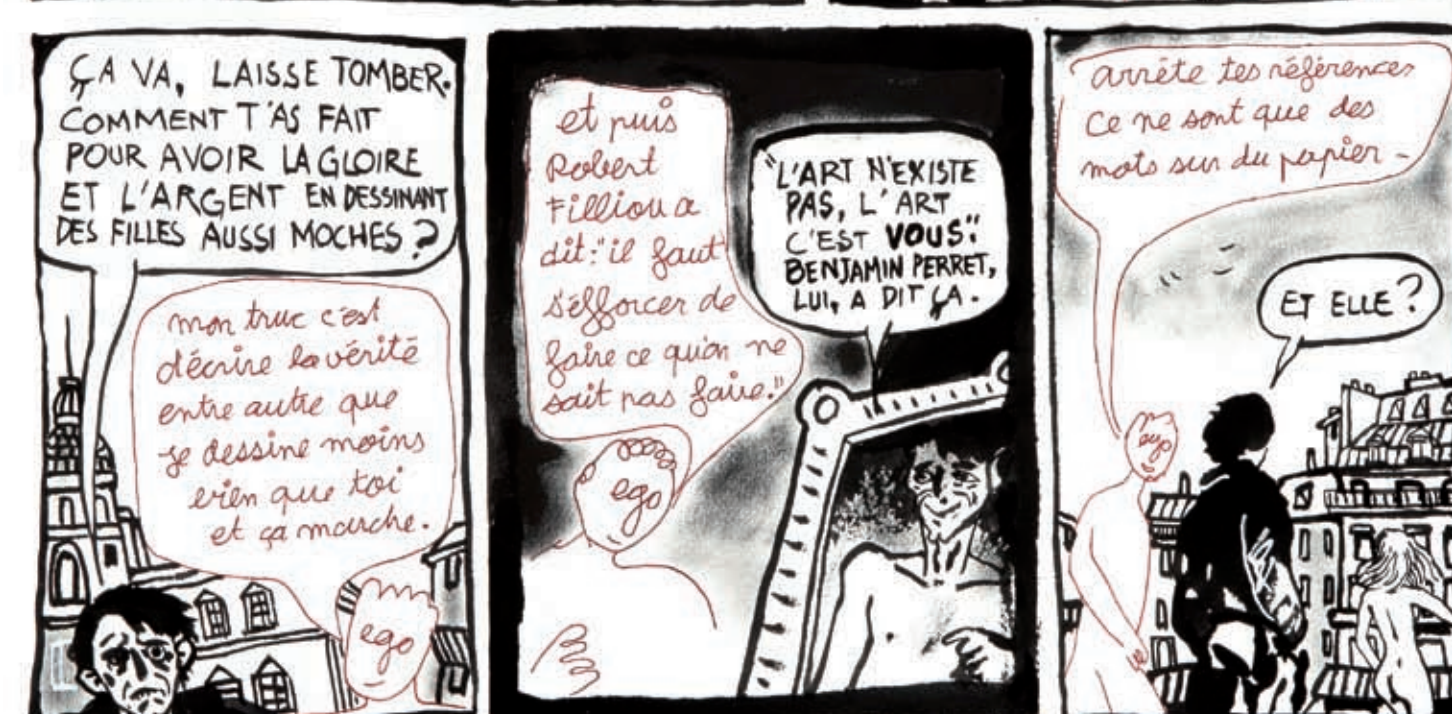 ÇA VA, LAISSE TOMBER.
COMMENT T'AS FAIT
POUR AVOIR LA GLOIRE
ET L'ARGENT EN DESSINANT
DES FILLES AUSSI MOCHES ?
mon truc c'est
d'écrire la vérité
entre autre que
je dessine moins
bien que toi
et ça marche.
ego
et puis
Robert
Filliou a
dit: "il faut
s'efforcer de
faire ce qu'on ne
sait pas faire."
ego
"L'ART N'EXISTE
PAS, L'ART
C'EST VOUS".
BENJAMIN PERRET,
LUI, A DIT ÇA.
arrête tes références
ce ne sont que des
mots sur du papier -
ego
ET ELLE ?